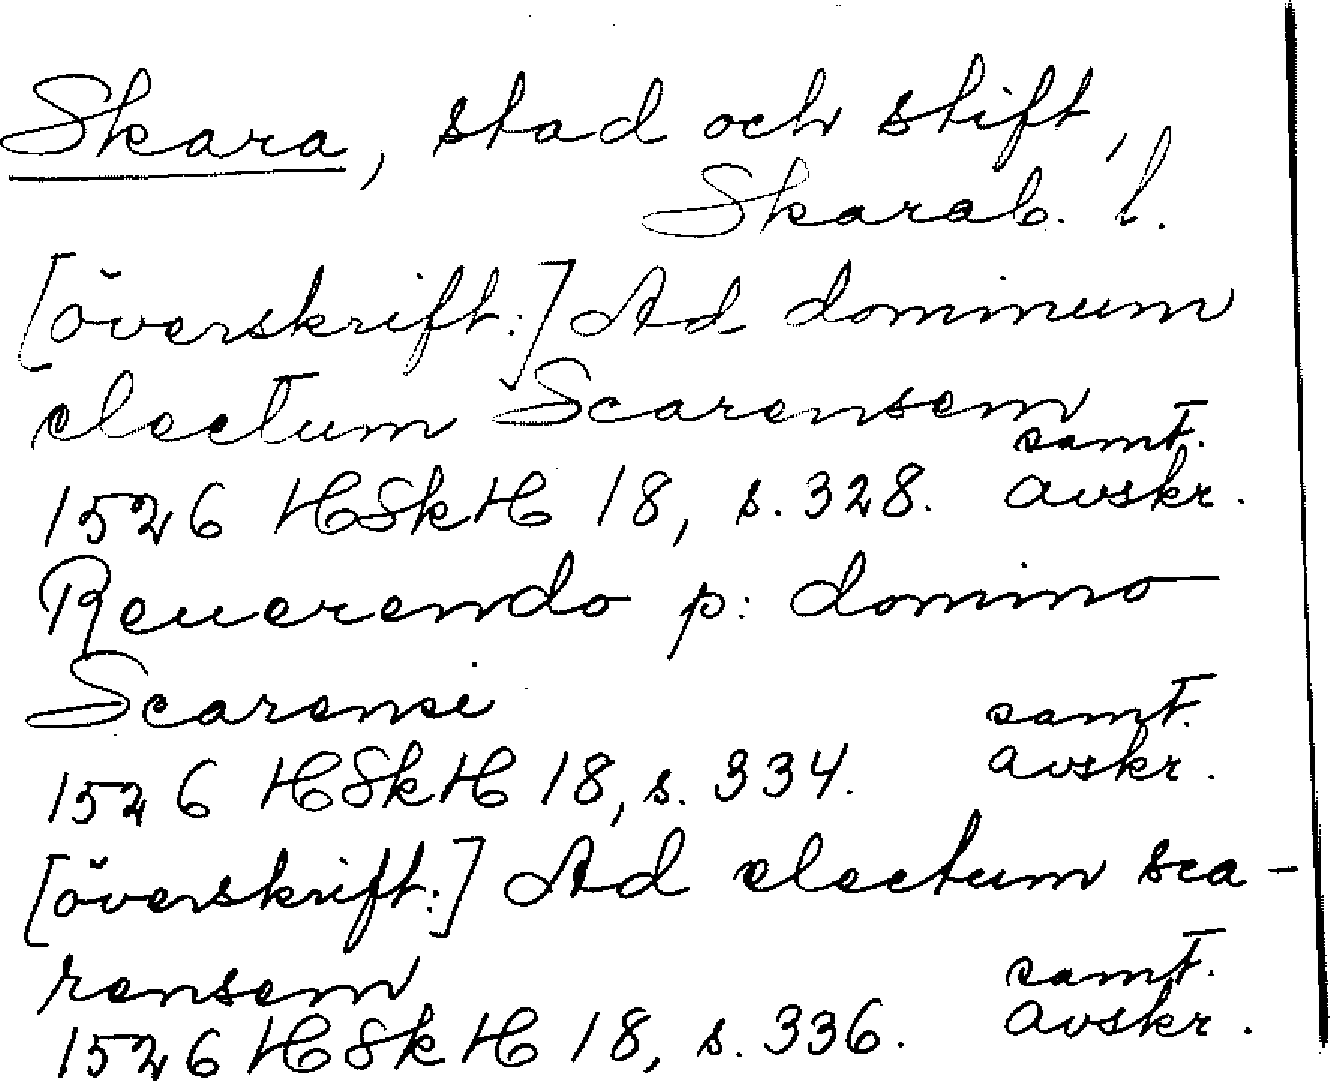 Skara, stad och stift,
Skarab. l.
[överskrift:] Ad dominum
electum Scarensem
samt.
1526 HSkH 18, s. 328. avskr.
Reuerendo p: domino
Scarensi
samt.
1526 HSkH 18, s. 334. avskr.
[överskrift:] Ad electum sca-
rensem
samt.
1526 HSkH 18, s. 336. avskr.